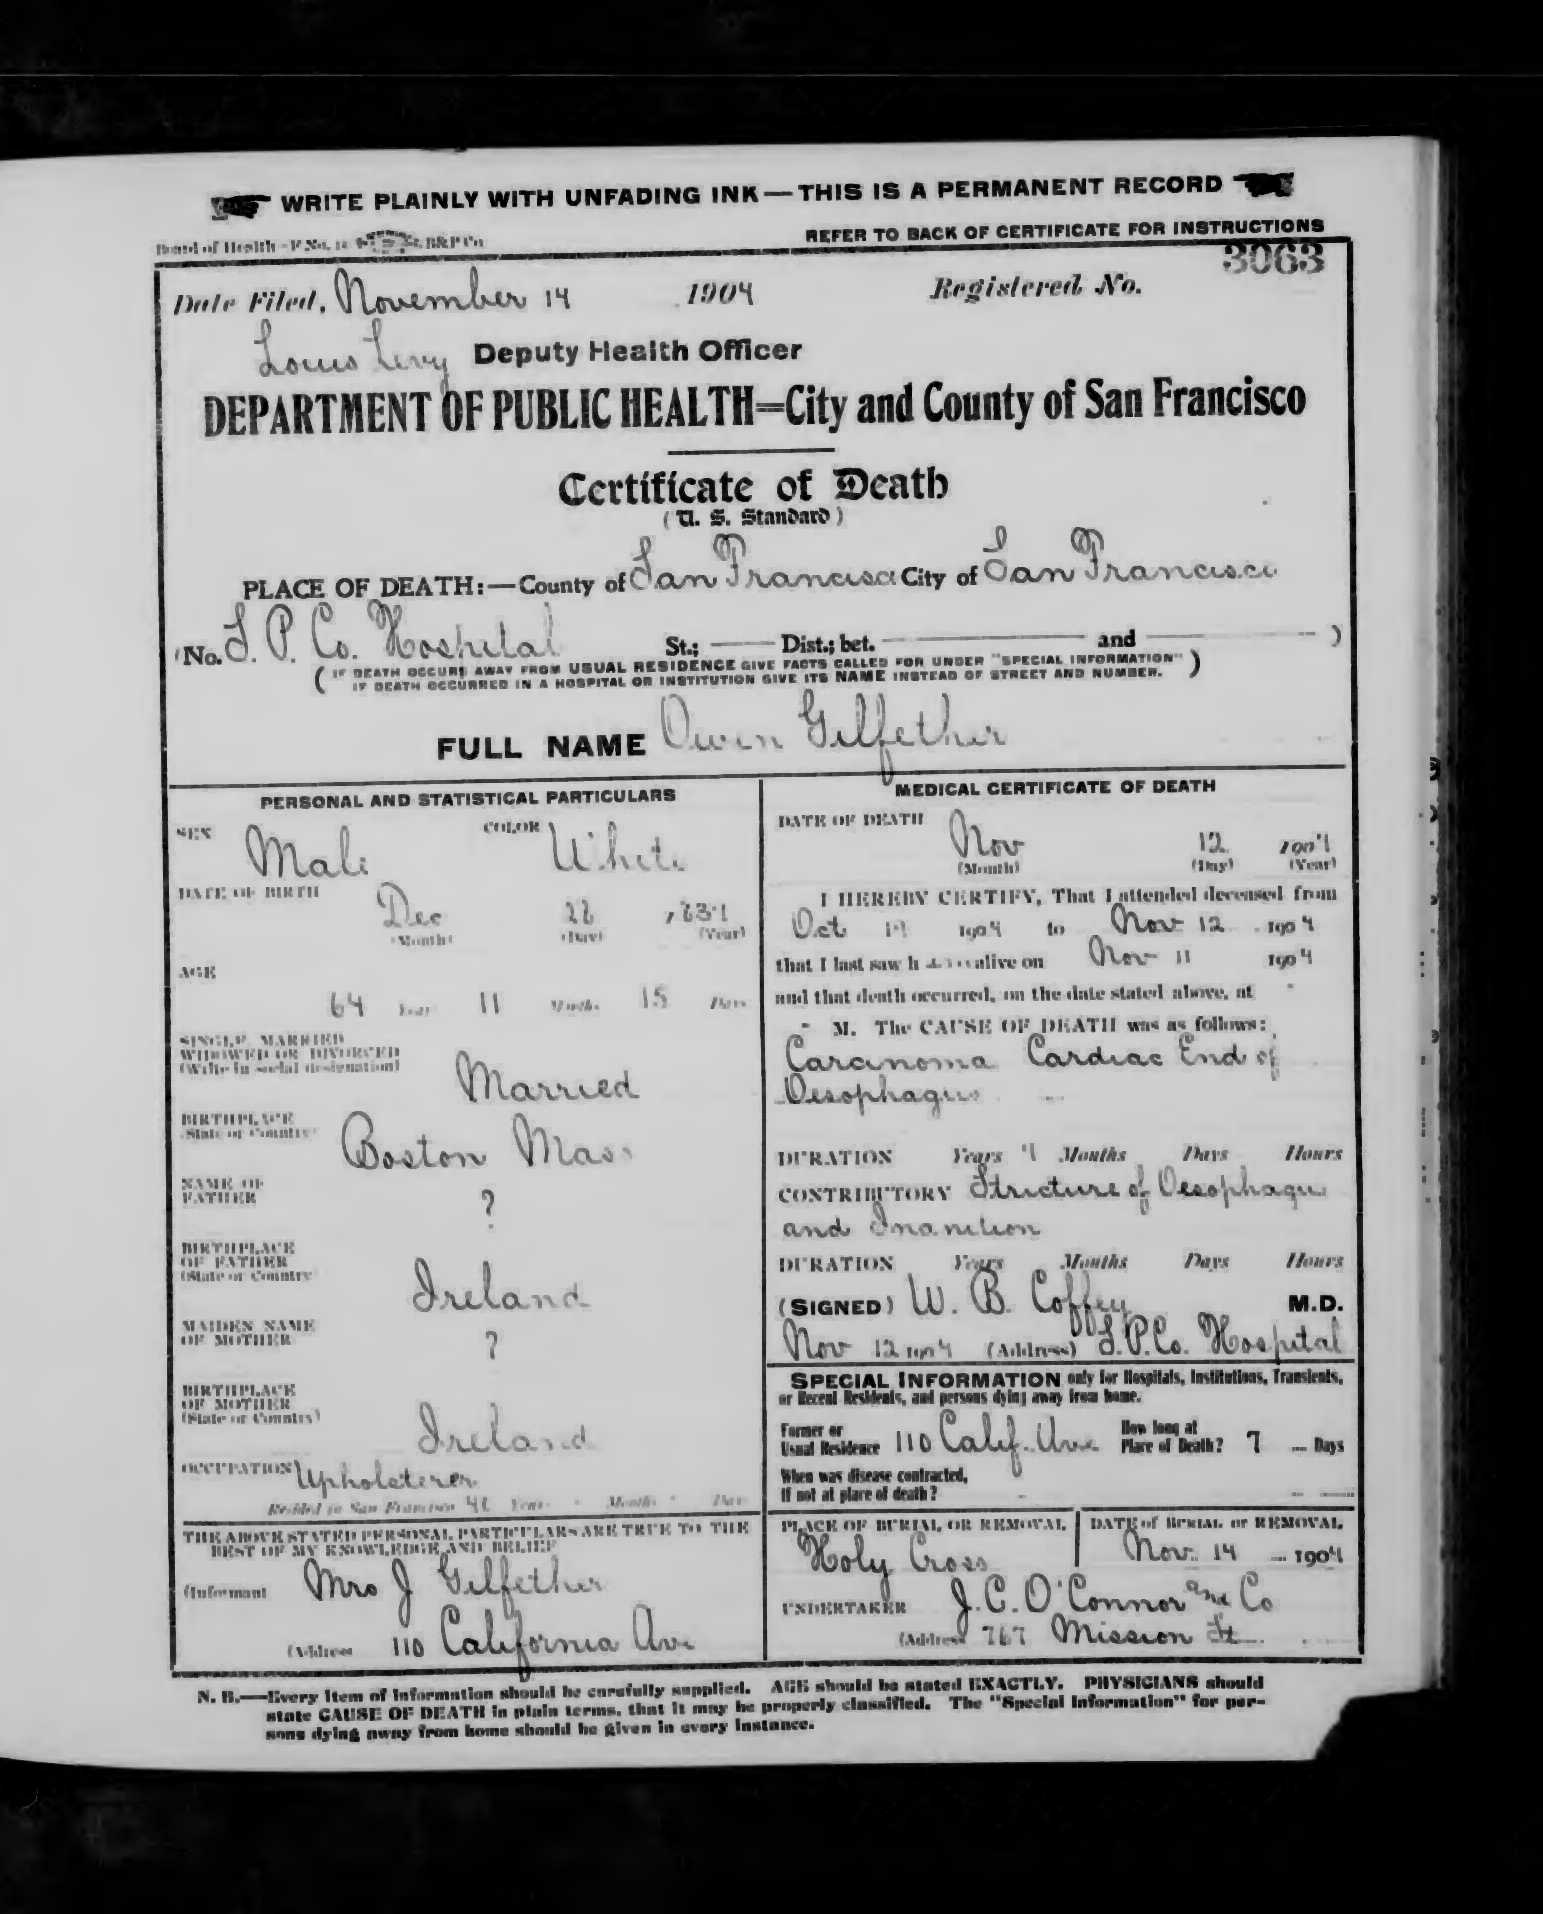 WRITE PLAINLY WITH UNFADING INK—THIS IS A PERMANENT RECORD
Board of Health B&P Co
REFER TO BACK OF CERTIFICATE FOR INSTRUCTIONS
3063
Date Filed, November 14 1904 Registered No.
Louis Levy Deputy Health Officer
DEPARTMENT OF PUBLIC HEALTH=City and County of San Francisco
Certificate of Death
(U. S. Standard)
PLACE OF DEATH:—County of San Francisco City of San Francisco
(No. S. P. Co. Hospital St.; Dist.; bet. and )
(IF DEATH OCCURS AWAY FROM USUAL RESIDENCE GIVE FACTS CALLED FOR UNDER "SPECIAL INFORMATION"
IF DEATH OCCURRED IN A HOSPITAL OR INSTITUTION GIVE ITS NAME INSTEAD OF STREET AND NUMBER.)
FULL NAME Owen Gilfether
PERSONAL AND STATISTICAL PARTICULARS
SEX Male COLOR White
DATE OF BIRTH Dec
(Month) (Day) (Year)
AGE
64 Years 11 Months 15 Days
SINGLE, MARRIED
WIDOWED OR DIVORCED
(Write in social designation)
Married
BIRTHPLACE
(State or Country)
Boston Mass
NAME OF
FATHER
?
BIRTHPLACE
OF FATHER
(State or Country)
Ireland
MAIDEN NAME
OF MOTHER
?
BIRTHPLACE
OF MOTHER
(State or Country)
Ireland
OCCUPATION Upholsterer
Resided in San Francisco Years Months Days
THE ABOVE STATED PERSONAL PARTICULARS ARE TRUE TO THE
BEST OF MY KNOWLEDGE AND BELIEF
(Informant Mrs J Gilfether
(Address 110 California Ave
MEDICAL CERTIFICATE OF DEATH
DATE OF DEATH
Nov 12 1904
(Month) (Day) (Year)
I HEREBY CERTIFY, That I attended deceased from
Oct 1904 to Nov 12 1904
that I last saw h alive on Nov 11 1904
and that death occurred, on the date stated above, at
M. The CAUSE OF DEATH was as follows:
Carcinoma Cardiac End of
Oesophagus
DURATION Years 4 Months Days Hours
CONTRIBUTORY Stricture of Oesophagus
and Inanition
DURATION Years Months Days Hours
(SIGNED) W. B. Coffey M.D.
Nov 12 1904 (Address) S.P.Co. Hospital
SPECIAL INFORMATION only for Hospitals, Institutions, Transients,
or Recent Residents, and persons dying away from home.
Former or
Usual Residence 110 Calif. Ave
How long at
Place of Death? 7 Days
When was disease contracted,
If not at place of death?
PLACE OF BURIAL OR REMOVAL
Holy Cross
DATE of BURIAL or REMOVAL
Nov. 14 1904
UNDERTAKER J. C. O'Connor and Co
(Address 767 Mission St
N. B.—Every item of information should be carefully supplied. AGE should be stated EXACTLY. PHYSICIANS should
state CAUSE OF DEATH in plain terms, that it may be properly classified. The "Special Information" for per-
sons dying away from home should be given in every instance.